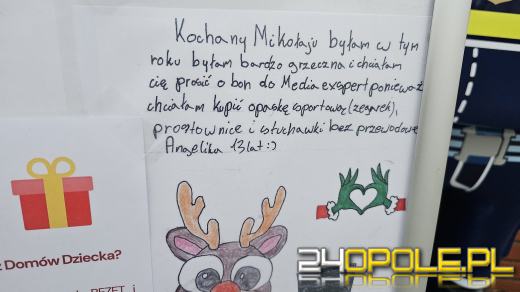 Kochany Mikołaju byłam w tym
roku byłam bardzo grzeczna i chciałam
cię prosić o bon do Media exspert ponieważ
chciałam kupić opaskę sportową (zegarek),
prostownice i słuchawki bez przewodowe
Angelika 13 lat :)
z Domów Dziecka?
REZET i
24OPOLE.PL